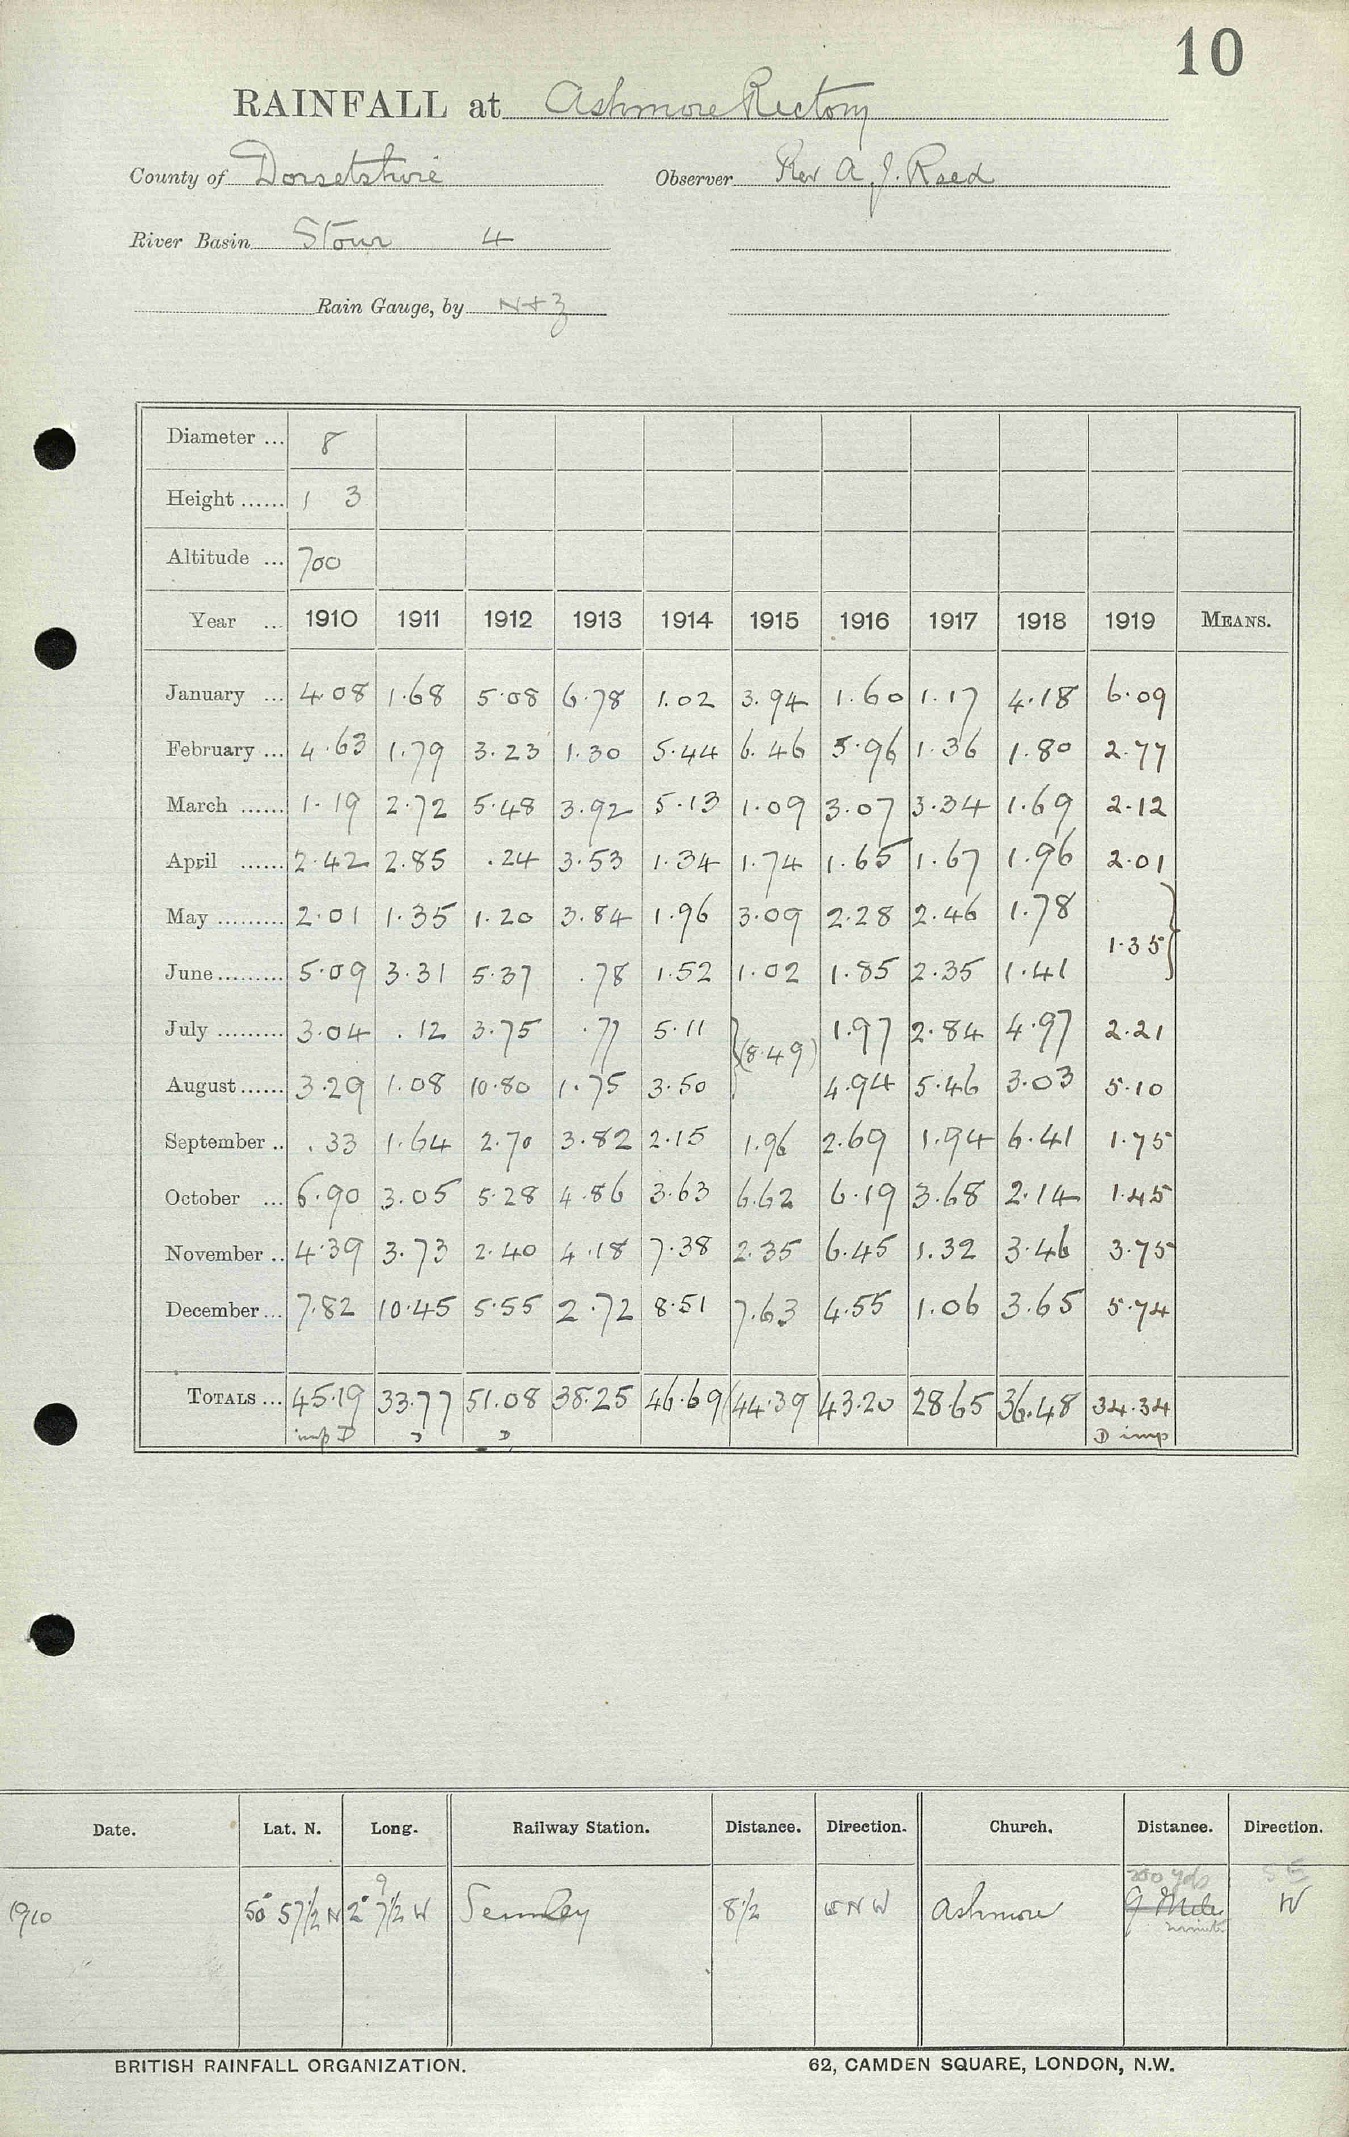 10
RAINFALL at Ashmore Rectory
County of Dorsetshire Observer Rev A. J. Reed
River Basin Stour 4
Rain Gauge, by N+Z
Diameter ... 8
Height ...... 1 3
Altitude ... 700
Year ... 1910 1911 1912 1913 1914 1915 1916 1917 1918 1919 MEANS.
January ... 4.08 1.68 5.08 6.78 1.02 3.94 1.60 1.17 4.18 6.09
February ... 4.63 1.79 3.23 1.30 5.44 6.46 5.96 1.36 1.80 2.77
March ...... 1.19 2.72 5.48 3.92 5.13 1.09 3.07 3.34 1.69 2.12
April ...... 2.42 2.85 .24 3.53 1.34 1.74 1.65 1.67 1.96 2.01
May ......... 2.01 1.35 1.20 3.84 1.96 3.09 2.28 2.46 1.78
1.35}
June ......... 5.09 3.31 5.37 .78 1.52 1.02 1.85 2.35 1.41
July ......... 3.04 .12 3.75 .77 5.11 }(8.49) 1.97 2.84 4.97 2.21
August ...... 3.29 1.08 10.80 1.75 3.50 4.94 5.46 3.03 5.10
September .. .33 1.64 2.70 3.82 2.15 1.96 2.69 1.94 6.41 1.75
October ... 6.90 3.05 5.28 4.86 3.63 6.62 6.19 3.68 2.14 1.45
November .. 4.39 3.73 2.40 4.18 7.38 2.35 6.45 1.32 3.46 3.75
December ... 7.82 10.45 5.55 2.72 8.51 7.63 4.55 1.06 3.65 5.74
TOTALS ... 45.19 33.77 51.08 38.25 46.69 (44.39 43.20 28.65 36.48 34.34
imp D D D D imp
Date. Lat. N. Long. Railway Station. Distance. Direction. Church. Distance. Direction.
9 200 yds SE
1910 50° 57½ N 2° 7½ W Semley 8½ WNW Ashmore 9 Mile W
minute
BRITISH RAINFALL ORGANIZATION. 62, CAMDEN SQUARE, LONDON, N.W.